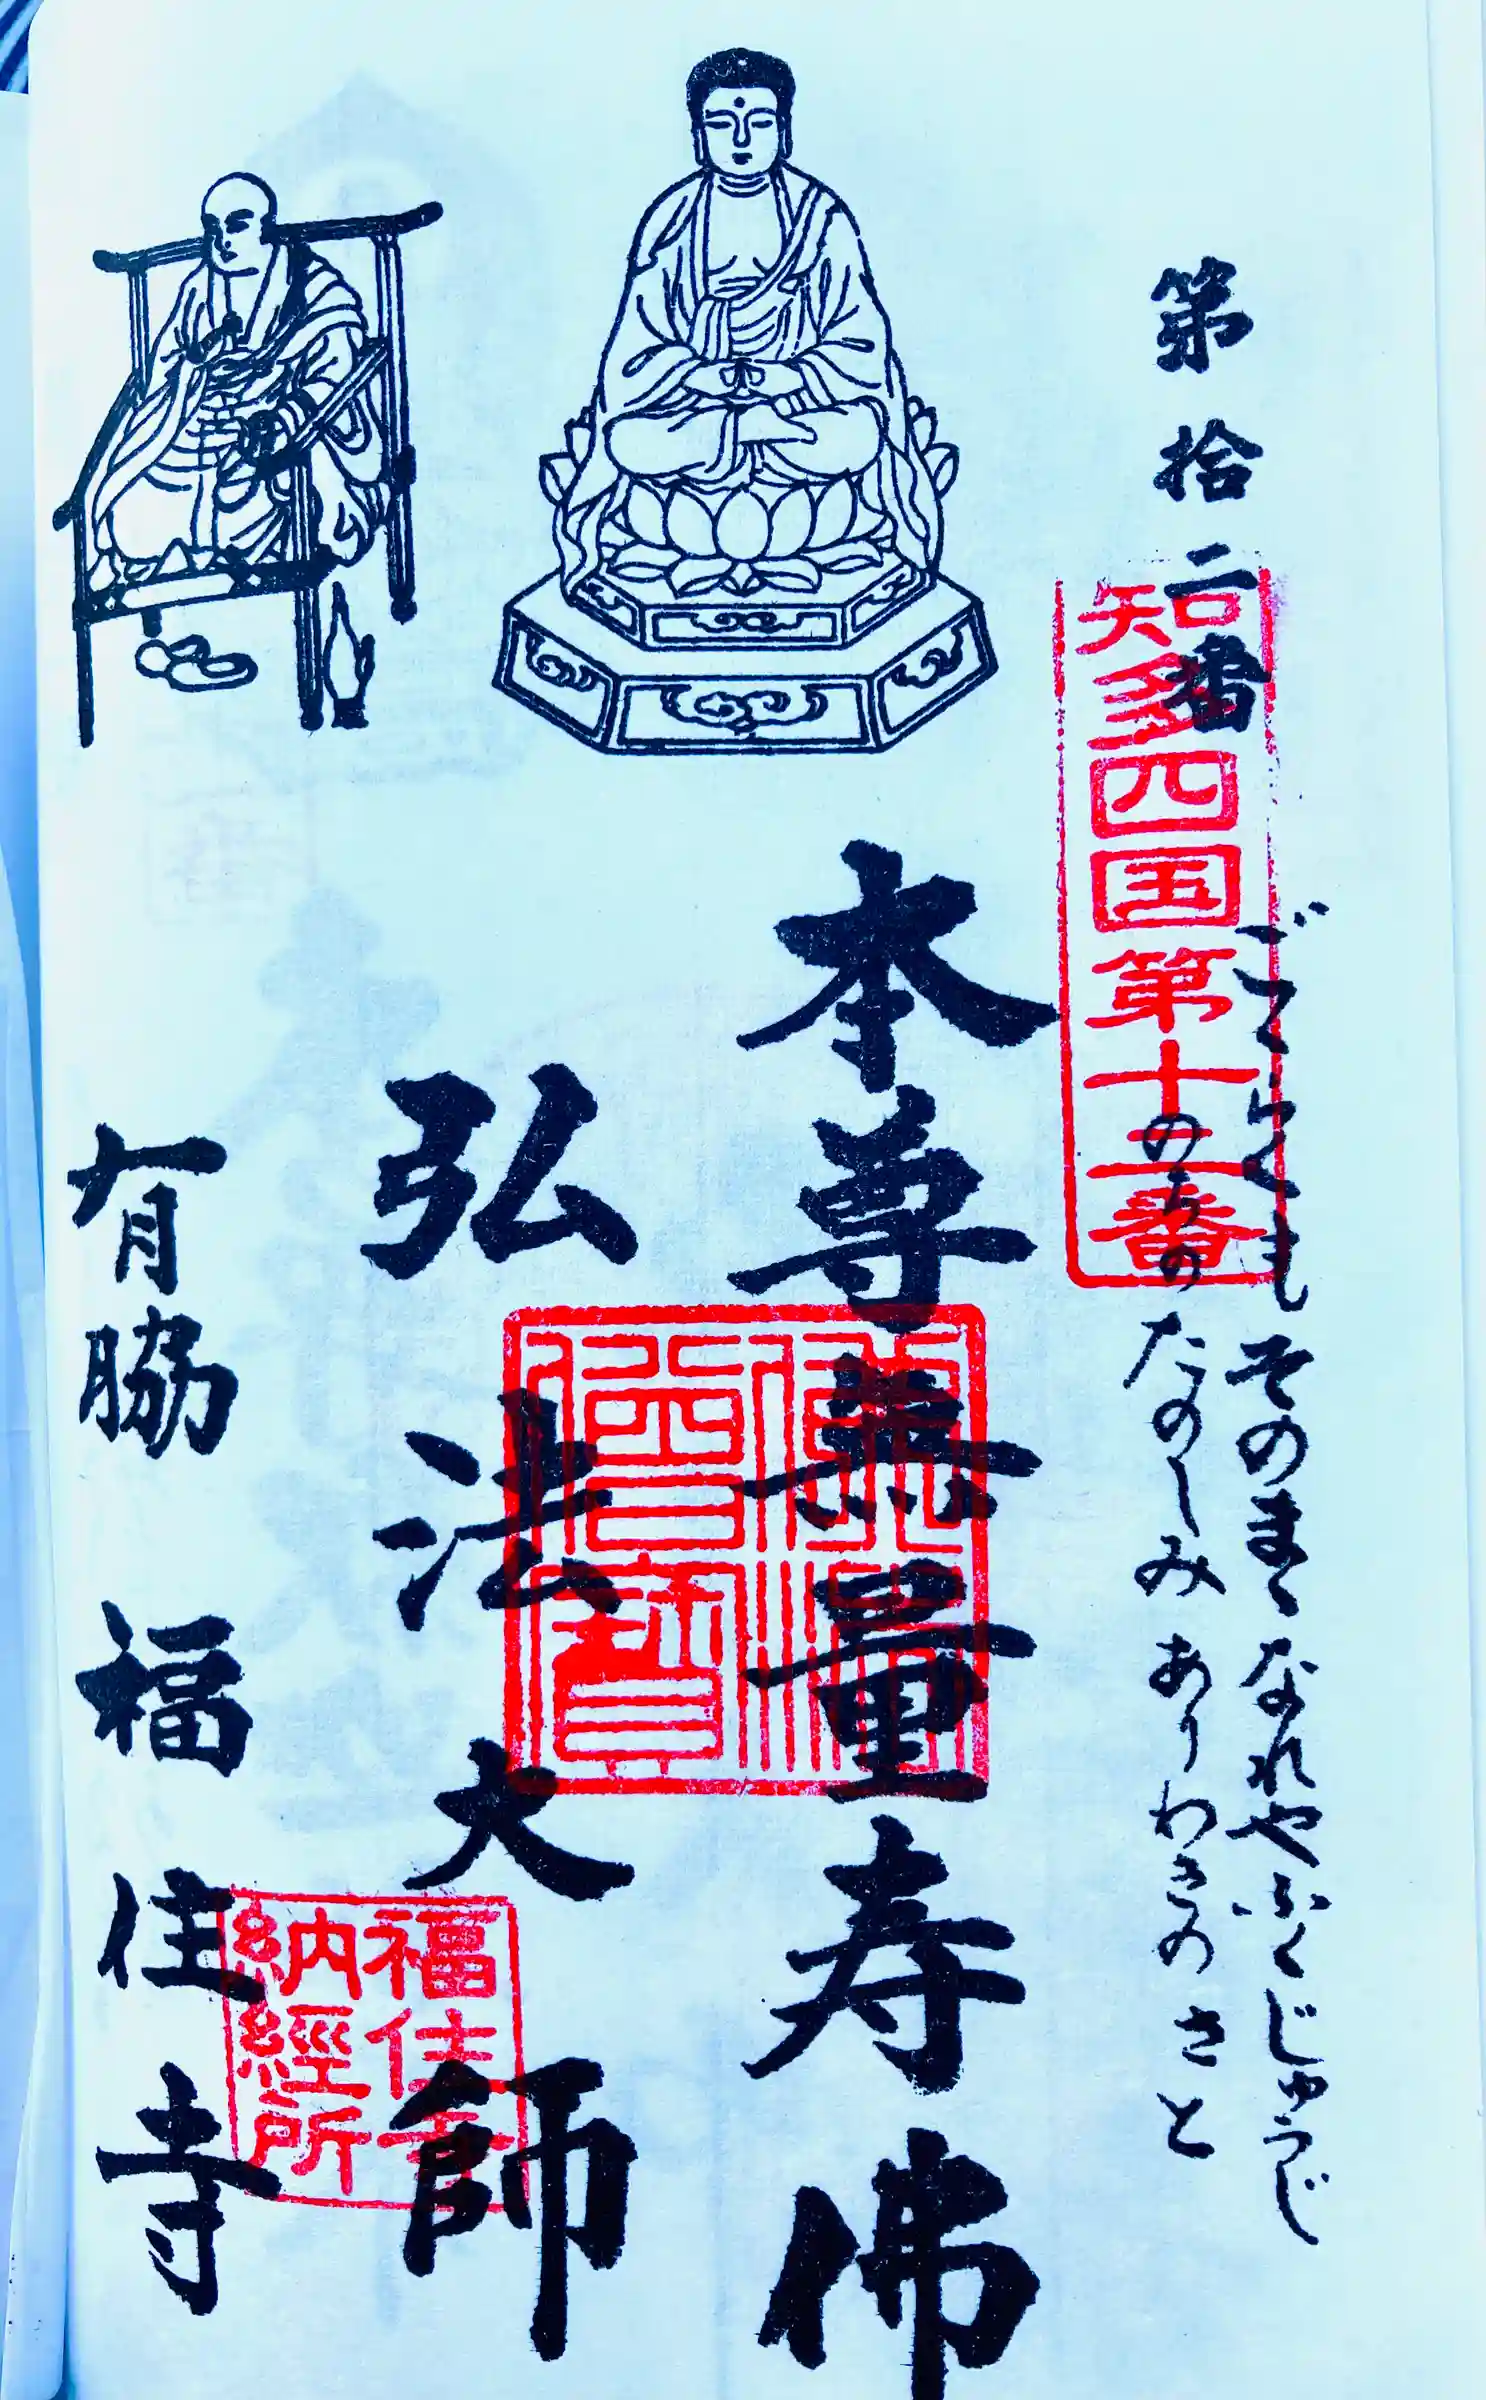 第拾二番
知多四国第十二番
ごくらくもそのまゝなれやふくじゅうじ
のちのたのしみありわきのさと
本尊無量寿佛
弘法大師
佛法僧寶
福住寺
納經所
有脇 福住寺